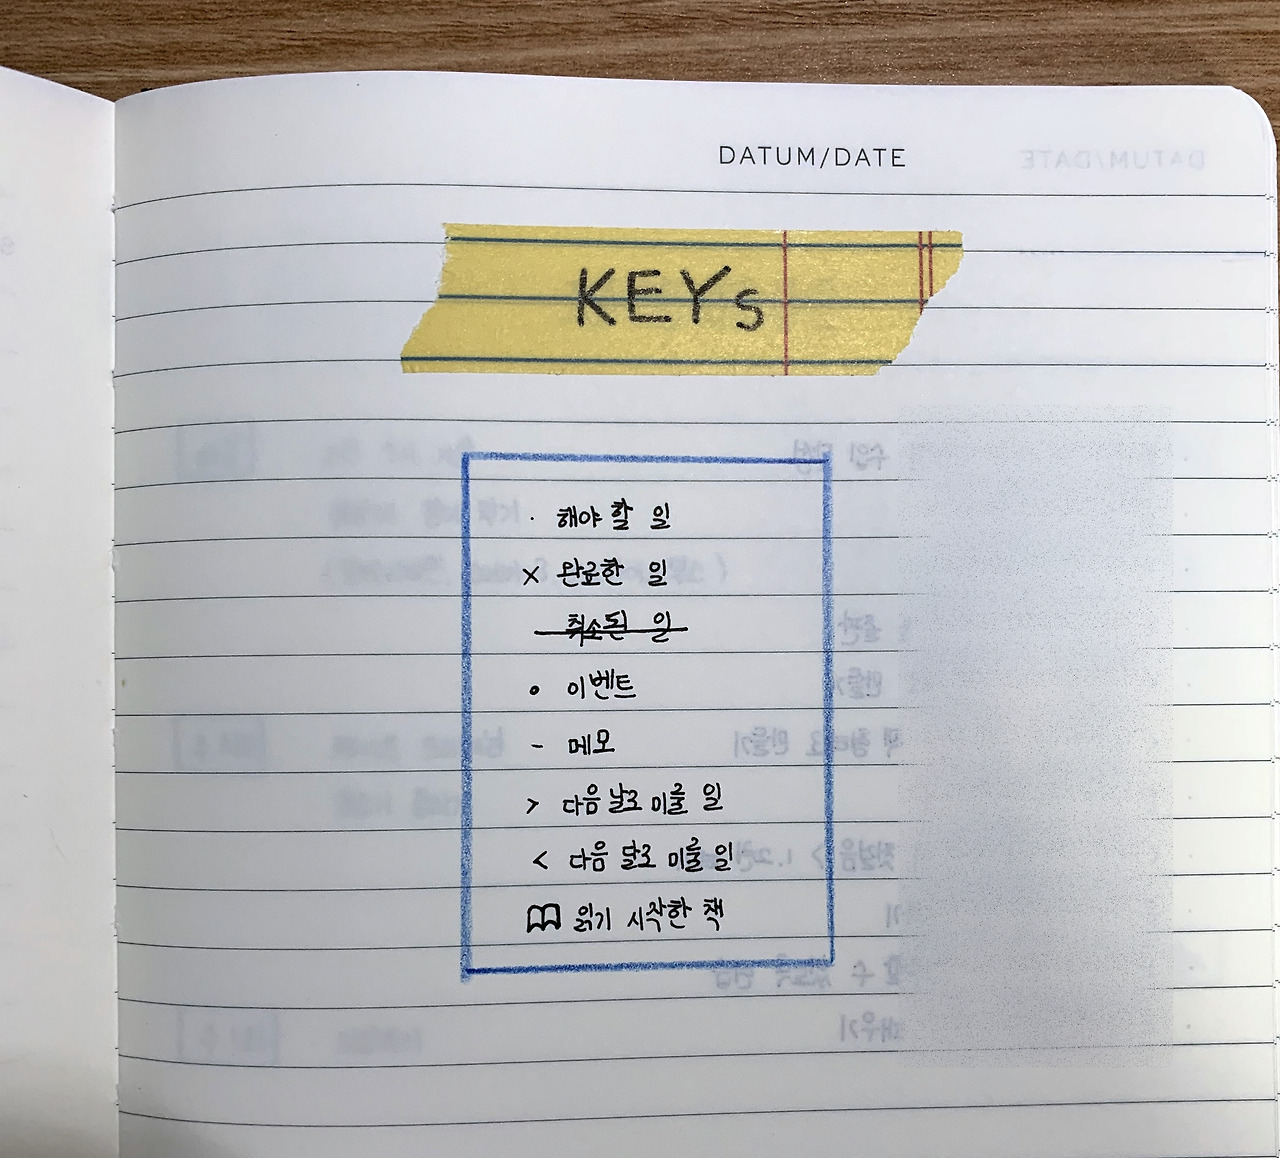 DATUM/DATE
KEYs
· 해야 할 일
x 완료한 일
취소된 일
• 이벤트
- 메모
> 다음 날로 미룰 일
< 다음 달로 미룰 일
읽기 시작한 책